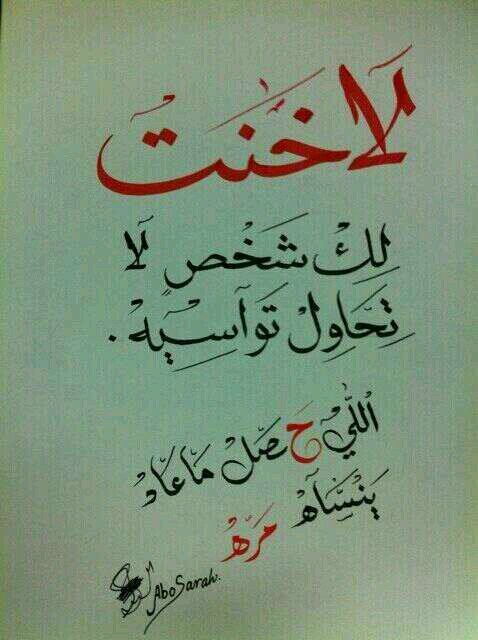 لَا خَنت
لِكْ شَخْص لَا
تِحَاوِلْ تَوآسِيهْ .
اللِّيْ حَصَلْ مَا عَادْ
يَنْسَاهْ مَرهْ
AboSarah.